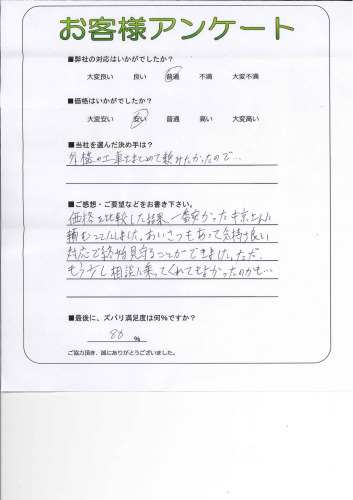 お客様アンケート
■弊社の対応はいかがでしたか?
大変良い 良い 普通 不満 大変不満
■価格はいかがでしたか?
大変安い 安い 普通 高い 大変高い
■当社を選んだ決め手は?
外構の工事もまとめて頼みたかったので…
■ご感想・ご要望などをお書き下さい。
価格を比較した結果、一番安かった中京さんに
頼むことにしました。あいさつもあって気持ち良い
対応で終始見守ることができました。ただ、
もう少し相談に乗ってくれてもよかったのかも…
■最後に、ズバリ満足度は何%ですか?
80 %
ご協力頂き、誠にありがとうございました。